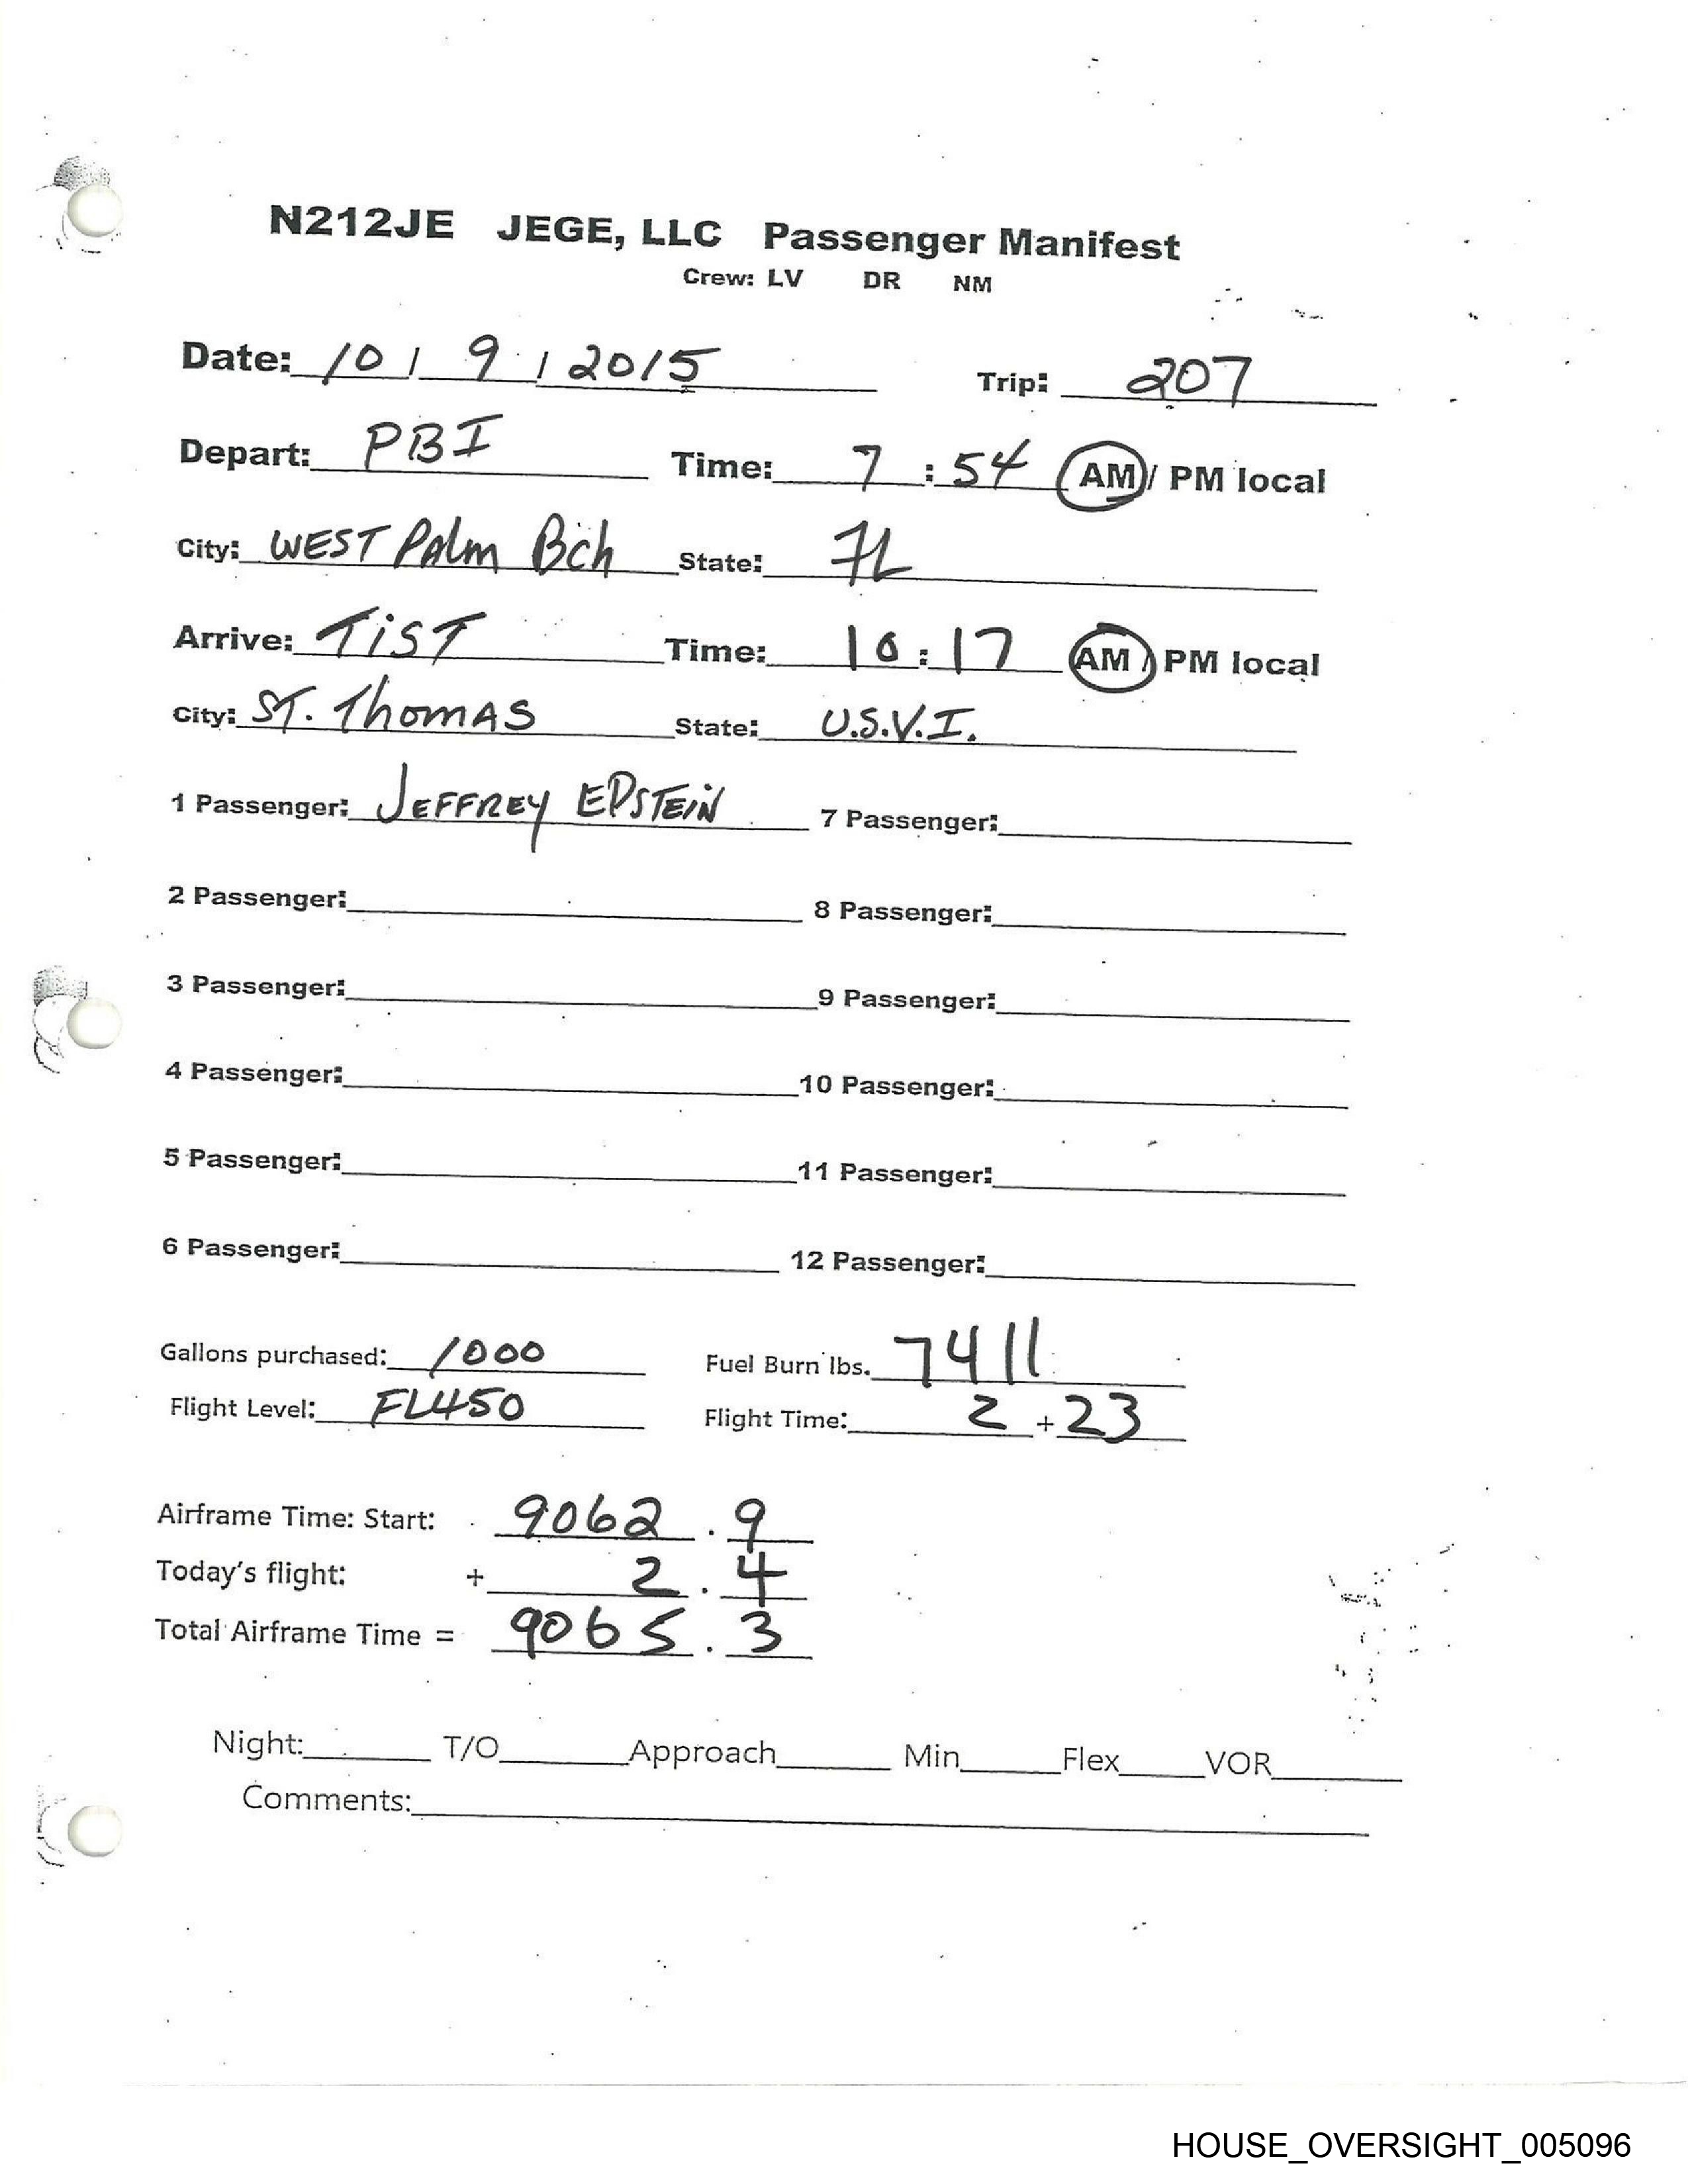 N212JE JEGE, LLC Passenger Manifest
Crew: LV DR NM
Date: 10 / 9 / 2015 Trip: 207
Depart: PBI Time: 7 : 54 AM / PM local
City: WEST PAlm Bch State: FL
Arrive: TiST Time: 10 : 17 AM / PM local
City: ST. ThomAS State: U.S.V.I.
1 Passenger: JEFFREY EPSTEiN 7 Passenger:
2 Passenger: 8 Passenger:
3 Passenger: 9 Passenger:
4 Passenger: 10 Passenger:
5 Passenger: 11 Passenger:
6 Passenger: 12 Passenger:
Gallons purchased: 1000 Fuel Burn lbs. 7411
Flight Level: FL450 Flight Time: 2 + 23
Airframe Time: Start: 9062 . 9
Today's flight: + 2 . 4
Total Airframe Time = 9065 . 3
Night: T/O Approach Min Flex VOR
Comments:
HOUSE_OVERSIGHT_005096